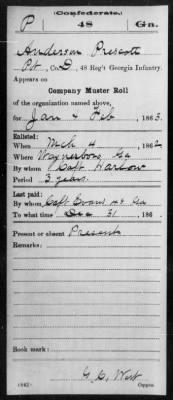 (Confederate.)
P 48 Ga.
Anderson Prescott
Pvt, Co. D, 48 Reg't Georgia Infantry.
Appears on
Company Muster Roll
of the organization named above,
for Jan & Feb, 1863.
Enlisted:
When Mch 4, 1862
Where Waynesboro, Ga
By whom Capt Harlow
Period 3 years
Last paid:
By whom Capt Evans
To what time Dec 31, 186
Present or absent Present
Remarks:
Book mark:
(642)
Copyist.